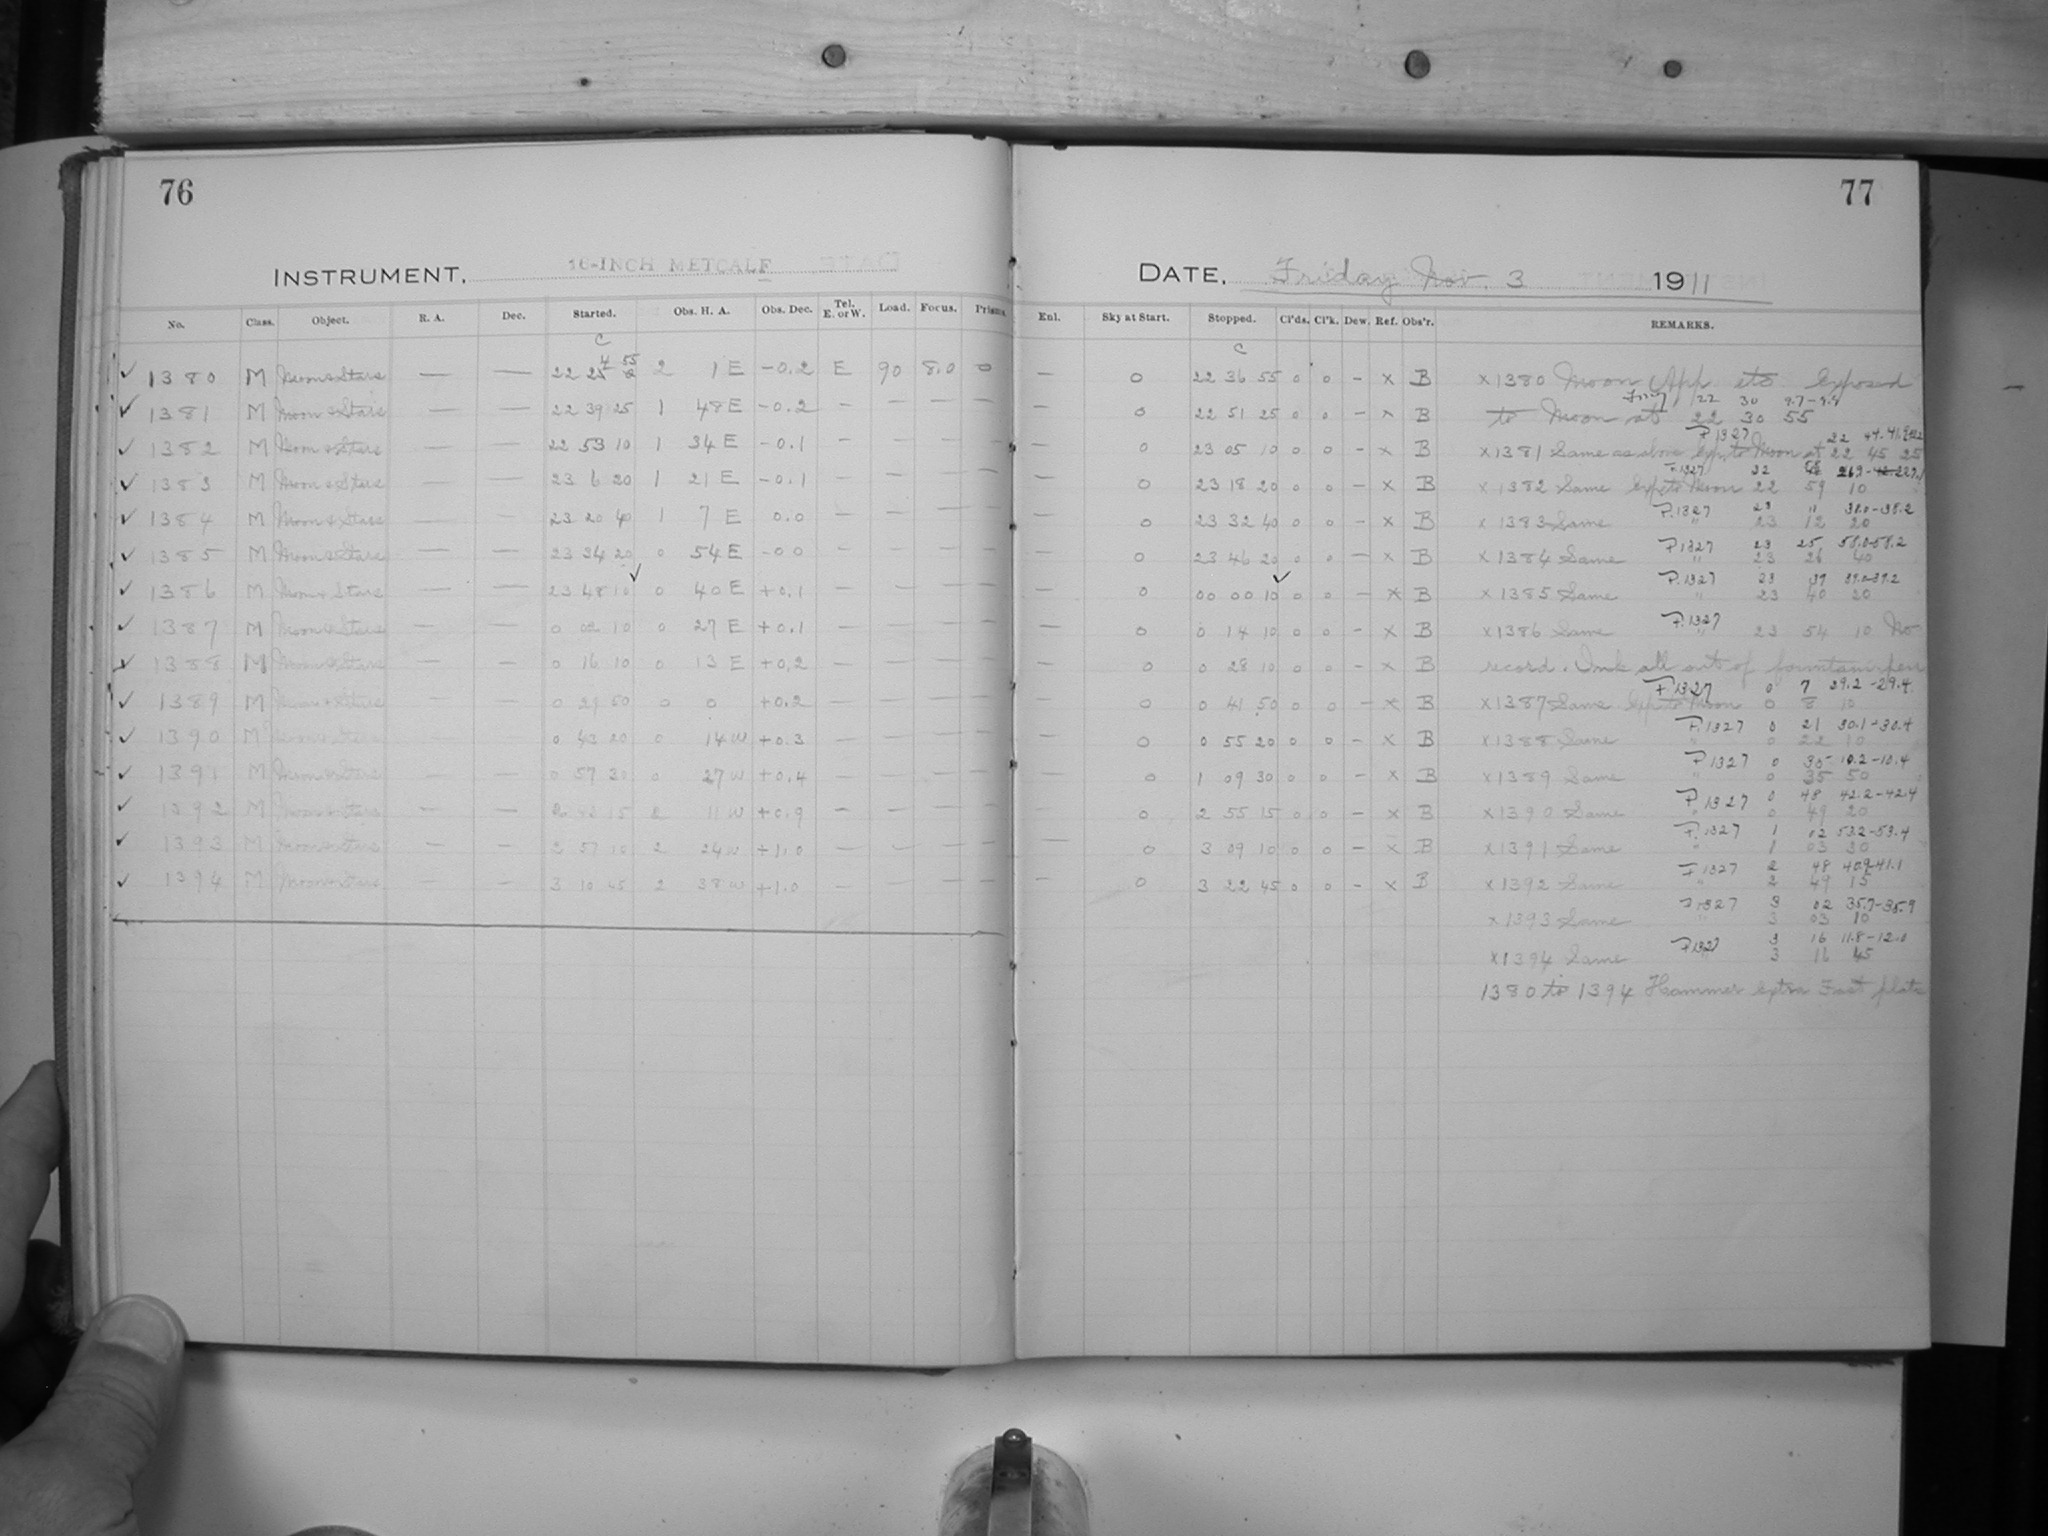 76
INSTRUMENT, 16-INCH METCALF
No. Class. Object. R. A. Dec. Started. Obs. H. A. Obs. Dec. Tel. E. or W. Load. Focus. Prisms.
C
1380 M Moon & Stars — — 22 24 55 2 1 E −0.2 E 90 8.0 0
1381 M Moon & Stars — — 22 39 25 1 48 E −0.2 — — — —
1382 M Moon & Stars — — 22 53 10 1 34 E −0.1 — — — —
1383 M Moon & Stars — — 23 6 20 1 21 E −0.1 — — — —
1384 M Moon & Stars — — 23 20 40 1 7 E 0.0 — — — —
1385 M Moon & Stars — — 23 34 20 0 54 E −0 0 — — — —
1386 M Moon & Stars — — 23 48 10 0 40 E +0.1 — — — —
1387 M Moon & Stars — — 0 02 10 0 27 E +0.1 — — — —
1388 M Moon & Stars — — 0 16 10 0 13 E +0.2 — — — —
1389 M Moon & Stars — — 0 29 50 0 0 +0.2 — — — —
1390 M Moon & Stars — — 0 43 20 0 14 W +0.3 — — — —
1391 M Moon & Stars — — 0 57 30 0 27 W +0.4 — — — —
1392 M Moon & Stars — — 2 43 15 2 11 W +0.9 — — — —
1393 M Moon & Stars — — 2 57 10 2 24 W +1.0 — — — —
1394 M Moon & Stars — — 3 10 45 2 38 W +1.0 — — — —
77
DATE, Friday Nov. 3 1911
Enl. Sky at Start. Stopped. Cl'ds. Cl'k. Dew. Ref. Obs'r. REMARKS.
C
— 0 22 36 55 0 0 – x B x 1380 Moon App etc Exposed
22 30 9.7-9.9
— 0 22 51 25 0 0 – x B to Moon at 22 30 55
F 1327 22 44
— 0 23 05 10 0 0 – x B x 1381 Same as above Exp to Moon at 22 45 25
F. 1327 22 58
— 0 23 18 20 0 0 – x B x 1382 Same Exp to Moon 22 59 10
F. 1327 23 11 38.0-38.2
— 0 23 32 40 0 0 – x B x 1383 Same " 23 12 20
F 1327 23 25 58.0-58.2
— 0 23 46 20 0 0 – x B x 1384 Same " 23 26 40
F. 1327 23 39 39.0-39.2
— 0 00 00 10 0 0 – x B x 1385 Same " 23 40 20
F. 1327
— 0 0 14 10 0 0 – x B x 1386 Same 23 54 10 No
— 0 0 28 10 0 0 – x B record. Ink all out of fountain pen
F. 1327 0 7 29.2-29.4
— 0 0 41 50 0 0 – x B x 1387 Same Exp to Moon 0 8 10
F. 1327 0 21 30.1-30.4
— 0 0 55 20 0 0 – x B x 1388 Same " 0 22 10
F 1327 0 35 10.2-10.4
— 0 1 09 30 0 0 – x B x 1389 Same " 0 35 50
F 1327 0 48 42.2-42.4
— 0 2 55 15 0 0 – x B x 1390 Same " 0 49 20
F. 1327 1 02 53.2-53.4
— 0 3 09 10 0 0 – x B x 1391 Same " 1 03 30
F 1327 2 48 40.9-41.1
— 0 3 22 45 0 0 – x B x 1392 Same " 2 49 15
F 1327 3 02 35.7-35.9
x 1393 Same " 3 03 10
F 1327 3 16 11.8-12.0
x 1394 Same 3 16 45
1380 to 1394 Hammer extra Fast plate